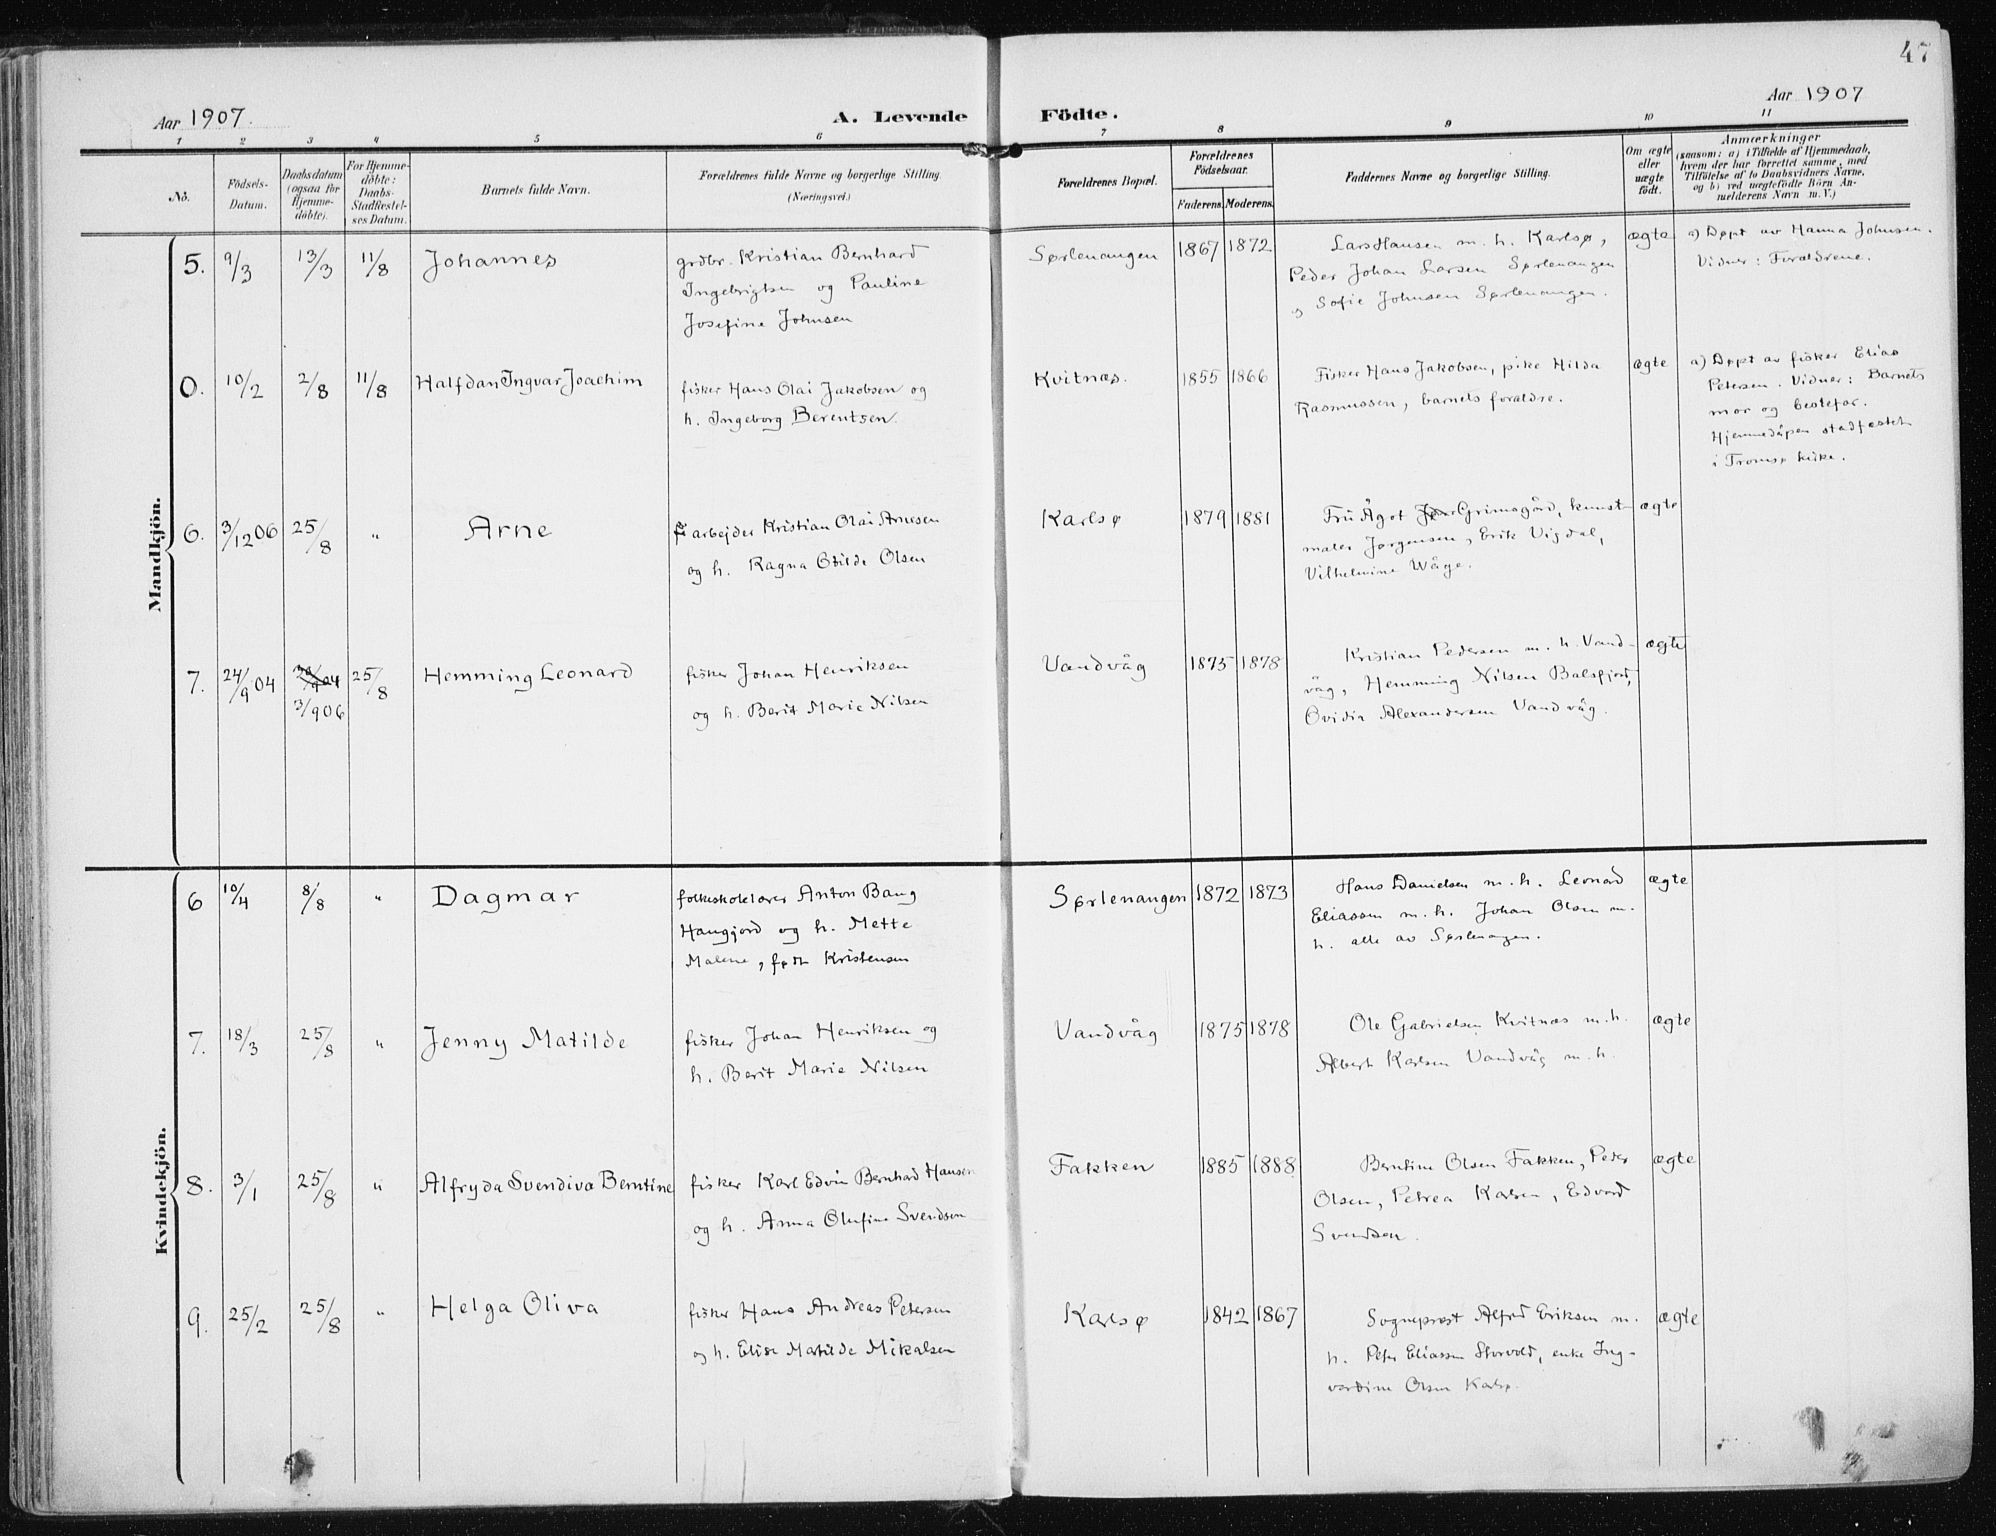 47
Aar 1907.
A. Levende Födte.
Aar 1907
1 2 3 4 5 6 7 8 9 10 11
No.
Födsels-
Datum.
Daabsdatum
(ogsaa for
Hjemme-
döbte).
For Hjemme-
döbte:
Daabs-
Stadfestel-
ses Datum.
Barnets fulde Navn.
Forældrenes fulde Navne og borgerlige Stilling.
(Næringsvei.)
Forældrenes Bopæl.
Forældrenes
Födselsaar.
Faderens. Moderens.
Faddernes Navne og borgerlige Stilling.
Om ægte
eller
uægte
födt.
Anmærkninger
(saasom: a) i Tilfælde af Hjemmedaab,
hvem der har forrettet samme, med
Tilföielse af to Daabsvidners Navne,
og b) ved uægtefödte Börn An-
melderens Navn m. V.)
Mandkjön.
5. 9/3 13/3 11/8 Johannes
grdbr. Kristian Bernhard
Ingebrigtsen og Pauline
Josefine Johnsen
Sørlenangen 1867 1872
Lars Hansen m. h. Karlsø,
Peder Johan Larsen Sørlenangen
og Sofie Johnsen Sørlenangen.
ægte
a) Døpt av Hanna Johnsen.
Vidner: Forældrene.
0. 10/2 2/8 11/8 Halfdan Ingvar Joachim
fisker Hans Olai Jakobsen og
h. Ingeborg Berentsen.
Kvitnæs. 1855 1866
Fisker Hans Jakobsen, pike Hilda
Rasmussen, barnets forældre.
ægte
a) Døpt av fisker Elias
Petersen. Vidner: Barnets
mor og bestefar.
Hjemmedåpen stadfæstet
i Tromsø kirke.
6. 3/12 06 25/8 " Arne
arbejder Kristian Olai Arnesen
og h. Ragna Otilde Olsen
Karlsø 1879 1881
Fru Ågot Grimsgård, kunst-
maler Jørgensen, Erik Vigdal,
Vilhelmine Wåge.
ægte
7. 24/9 04 3/9 06 25/8 Hemming Leonard
fisker Johan Henriksen
og h. Berit Marie Nilsen
Vandvåg 1875 1878
Kristian Pedersen m. h. Vand-
våg, Hemming Nilsen Balsfjord,
Ovidia Alexandersen Vandvåg.
ægte
Kvindekjön.
6 10/4 8/8 " Dagmar
folkeskolelærer Anton Bang
Haugjord og h. Mette
Malene, født Kristensen
Sørlenangen 1872 1873
Hans Danielsen m. h. Leonard
Eliassen m. h. Johan Olsen m.
h. alle av Sørlenangen.
ægte
7. 18/3 25/8 " Jenny Matilde
fisker Johan Henriksen og
h. Berit Marie Nilsen
Vandvåg 1875 1878
Ole Gabrielsen Kvitnæs m. h.
Albert Karlsen Vandvåg m. h.
ægte
8. 3/1 25/8 " Alfryda Svendiva Berntine
fisker Karl Edvin Bernhard Hansen
og h. Anna Olufine Svendsen
Fakken 1885 1888
Berntine Olsen Fakken, Peder
Olsen, Petrea Karlsen, Edvard
Svendsen.
ægte
9. 25/2 25/8 " Helga Oliva
fisker Hans Andreas Petersen
og h. Elise Matilde Mikalsen
Karlsø 1842 1867
Sogneprest Alfred Eriksen m.
h. Peter Eliassen Storvold, enke Ing-
vardine Olsen Karlsø.
ægte